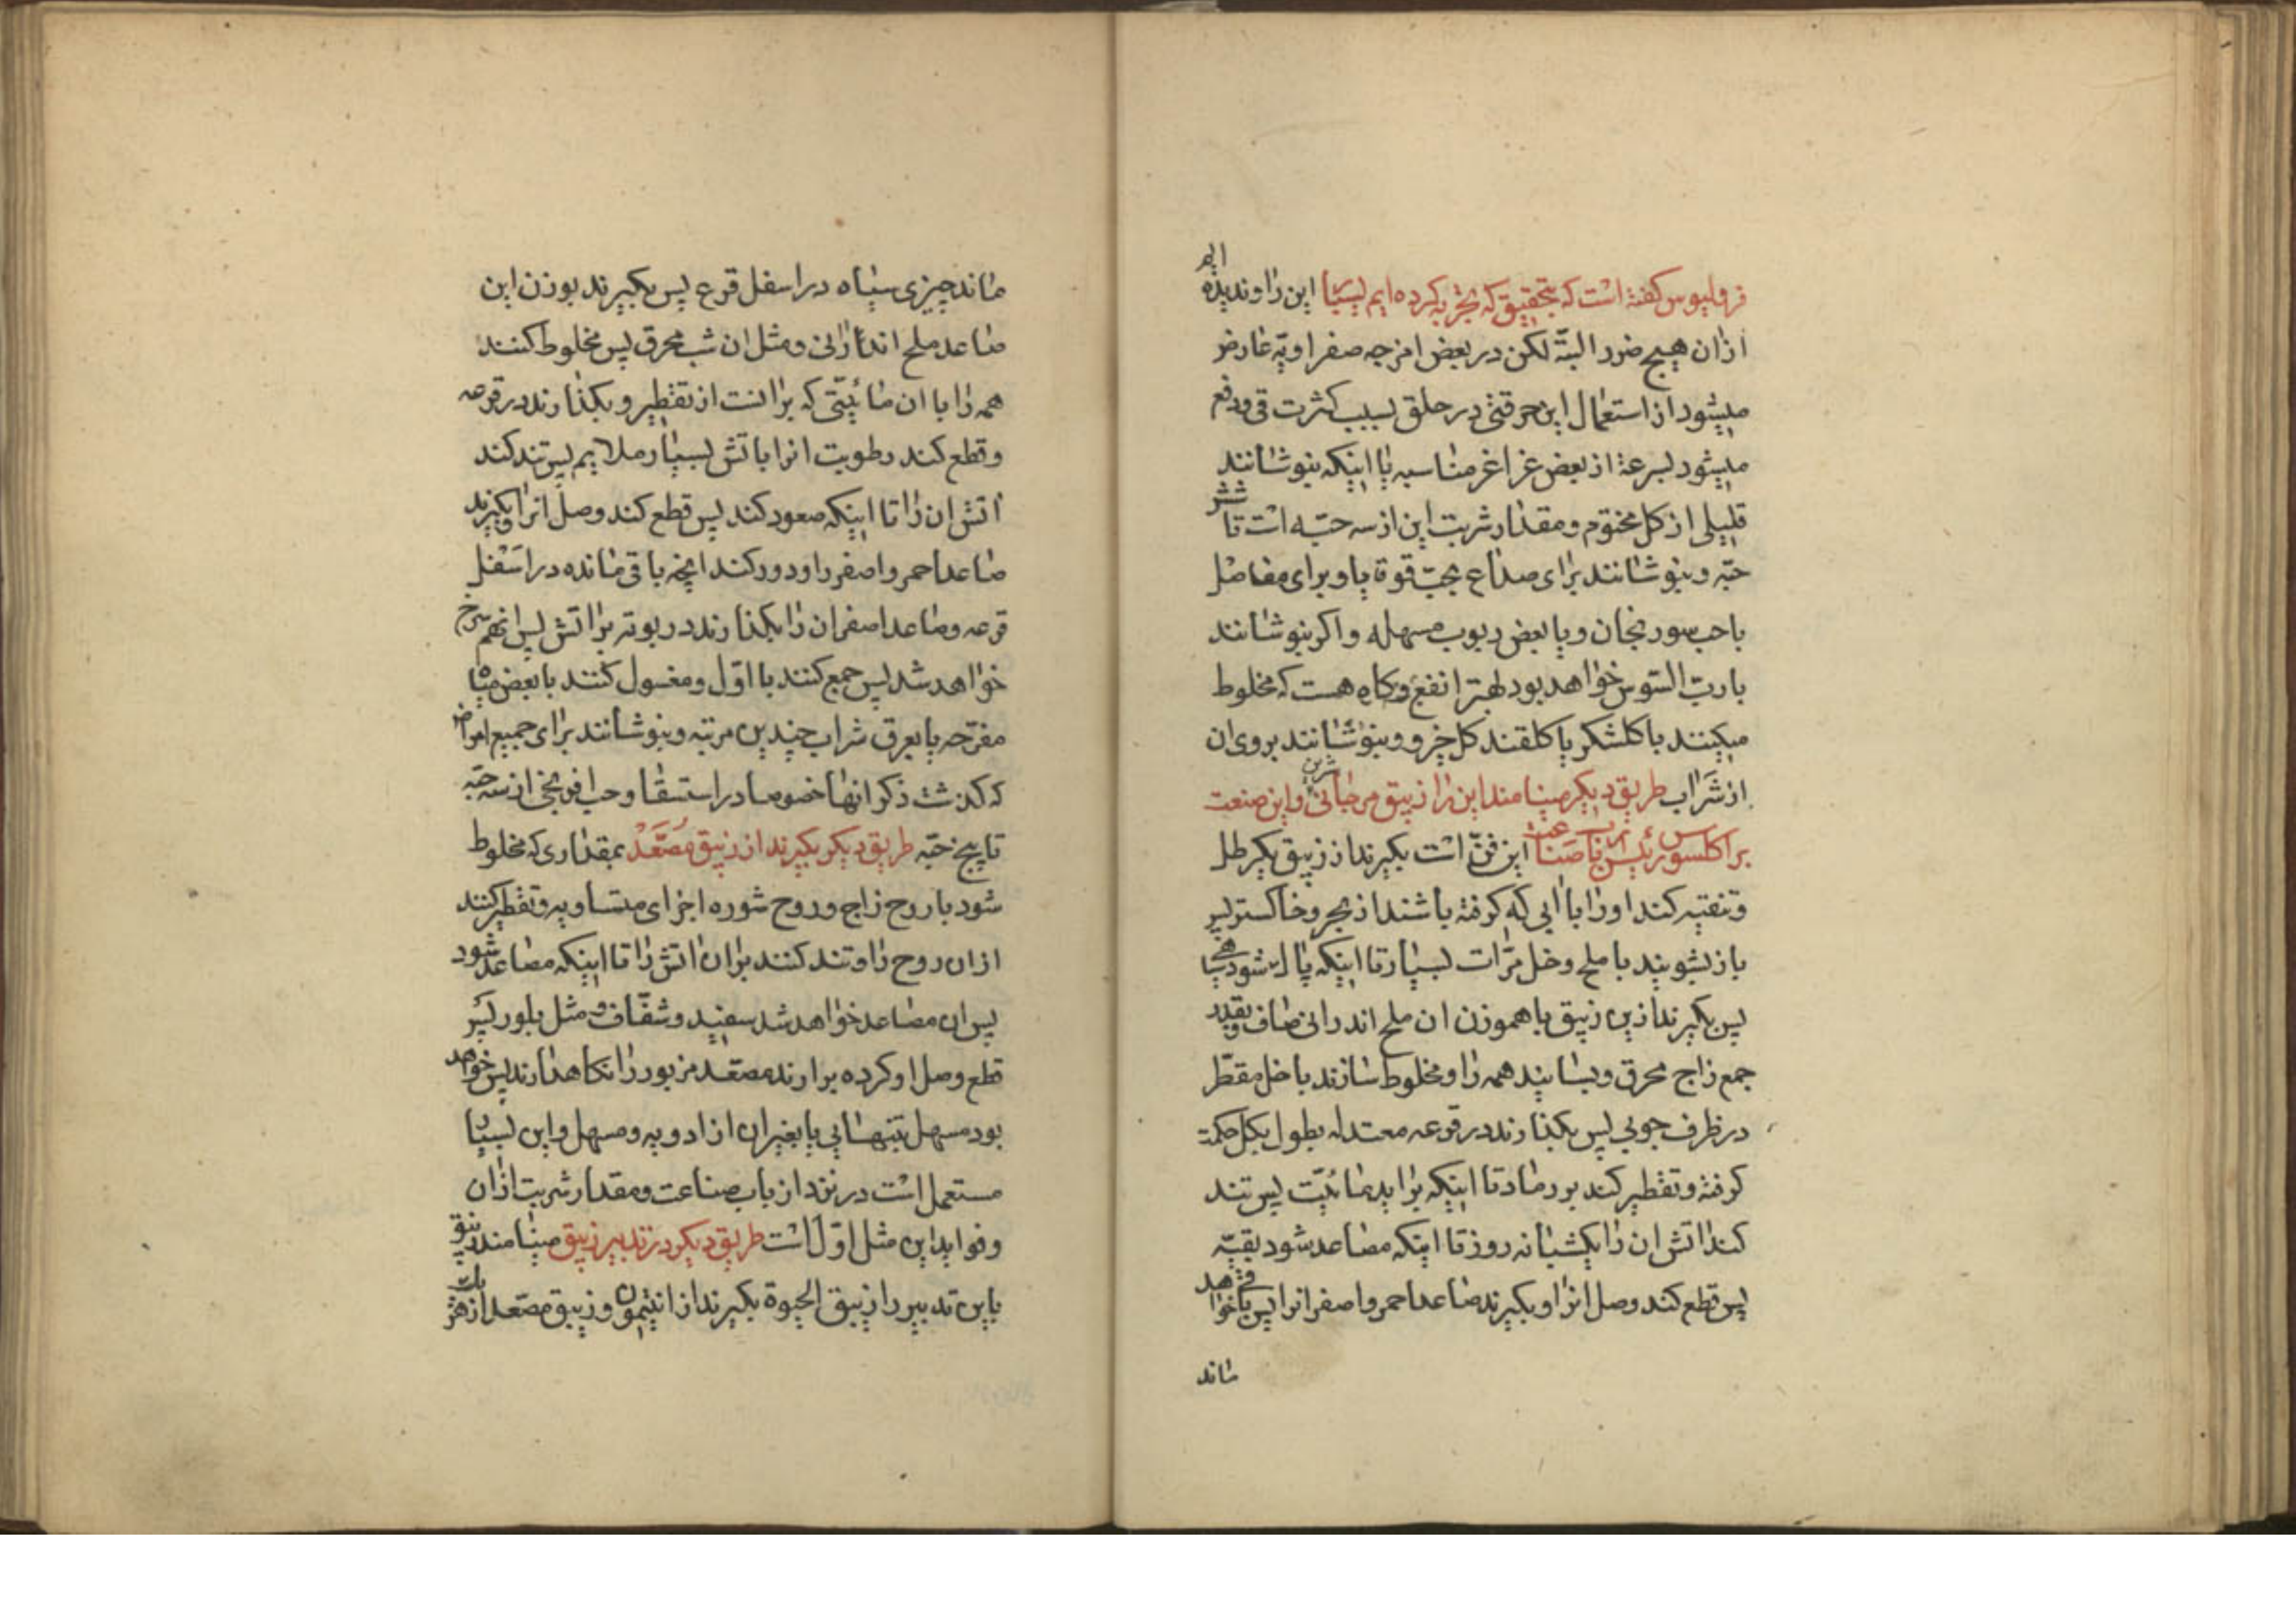 قرولیوس کفته است که بتحقیق که تجربه کرده ایم بسیار این را و ندیده ایم
ازان هیچ ضرر البتّه لکن در بعض امزجه صفراویّه عارض
میشود از استعمال این حرقتی در حلق بسبب کثرت قی و دفع
میشود بسرعة از بعض غراغر مناسبه یا اینکه بنوشانند
قلیلی از کل مختوم و مقدار شربت این از سه حبّه است تا شش
حبّه و بنوشانند برای صداع بحبّ قوقایا و برای مفاصل
با حب سورنجان و یا بعض ربوب مسهله و اکر بنوشانند
با ربّ السوس خواهد بود بهتر انفع و کاه هست که مخلوط
میکنند با کلشکر یا کلقند کل خیرو و بنوشانند بروی ان
از شراب طریق دیکر مینامند این را زیبق مرجانی و این صنعت
براکلسوس رئیس ارباب صناعت این فنّ است بکیرند از زیبق یکرطل
و تنقیه کند او را با ابی که کرفته باشند از بحر و خاکستر پس
باز بشویند با ملح و خل مرّات بسیار تا اینکه پاک شود
پس بکیرند ازین زیبق با هموزن ان ملح اندرانی صاف و بقدر
جمع زاج محرق و بسایند همه را و مخلوط سازند با خل مقطّر
در ظرف چوبی پس بکذارند در قرعه معتدله بطول بکل حکمة
کرفته و تقطیر کند بر رماد تا اینکه براید مائیّت پس تند
کند اتش ان را یکشبانه روز تا اینکه مصاعد شود بقیّه
پس قطع کند وصل انرا و بکیرند صاعد احمر و اصفر انرا پس باقی خواهد
ماند
ماند چیزی سیاه در اسفل قرع پس بکیرند بوزن این
صاعد ملح اندارانی و مثل ان شب محرق پس مخلوط کنند
همه را با ان مائیّتی که برانست از تقطیر و بکذارند در قرعه
و قطع کند رطوبت انرا باتش بسیار ملایم پس تند کند
اتش ان را تا اینکه صعود کند پس قطع کند وصل انرا و بکیرند
صاعد احمر و اصفر را و دور کند انچه باقی مانده در اسفل
قرعه و صاعد اصفر ان را بکذارند در بوته بر اتش پس انهم سرخ
خواهد شد پس جمع کنند با اوّل و مغسول کنند با بعض میاه
مفرّحه یا بعرق شراب چندین مرتبه و بنوشانند برای جمیع امراض
که کذشت ذکر انها خصوصا در استسقا و حب افرنجی از سه حبّه
تا پنج حبّه طریق دیکر بکیرند از زیبق مصّعد بمقداری که مخلوط
شود با روح زاج و روح شوره اجزای متساویه و تقطیر کنند
ازان روح را و تند کنند بران اتش را تا اینکه مصاعد شود
پس ان مصاعد خواهد شد سفید و شفّاف و مثل بلور پس
قطع وصل او کرده برارند مصّعد مزبور را نکاهدارند پس خواهد
بود مسهل بتنهایی یا بغیر ان از ادویه و مسهل و این بسیار
مستعمل است در نزد ارباب صناعت و مقدار شربت ازان
و فواید این مثل اوّل است طریق دیکر در تدبیر زیبق مینامند زیبق
باین تدبیر را زیبق الحیوة بکیرند از انتیمون و زیبق مصّعد از هر یک